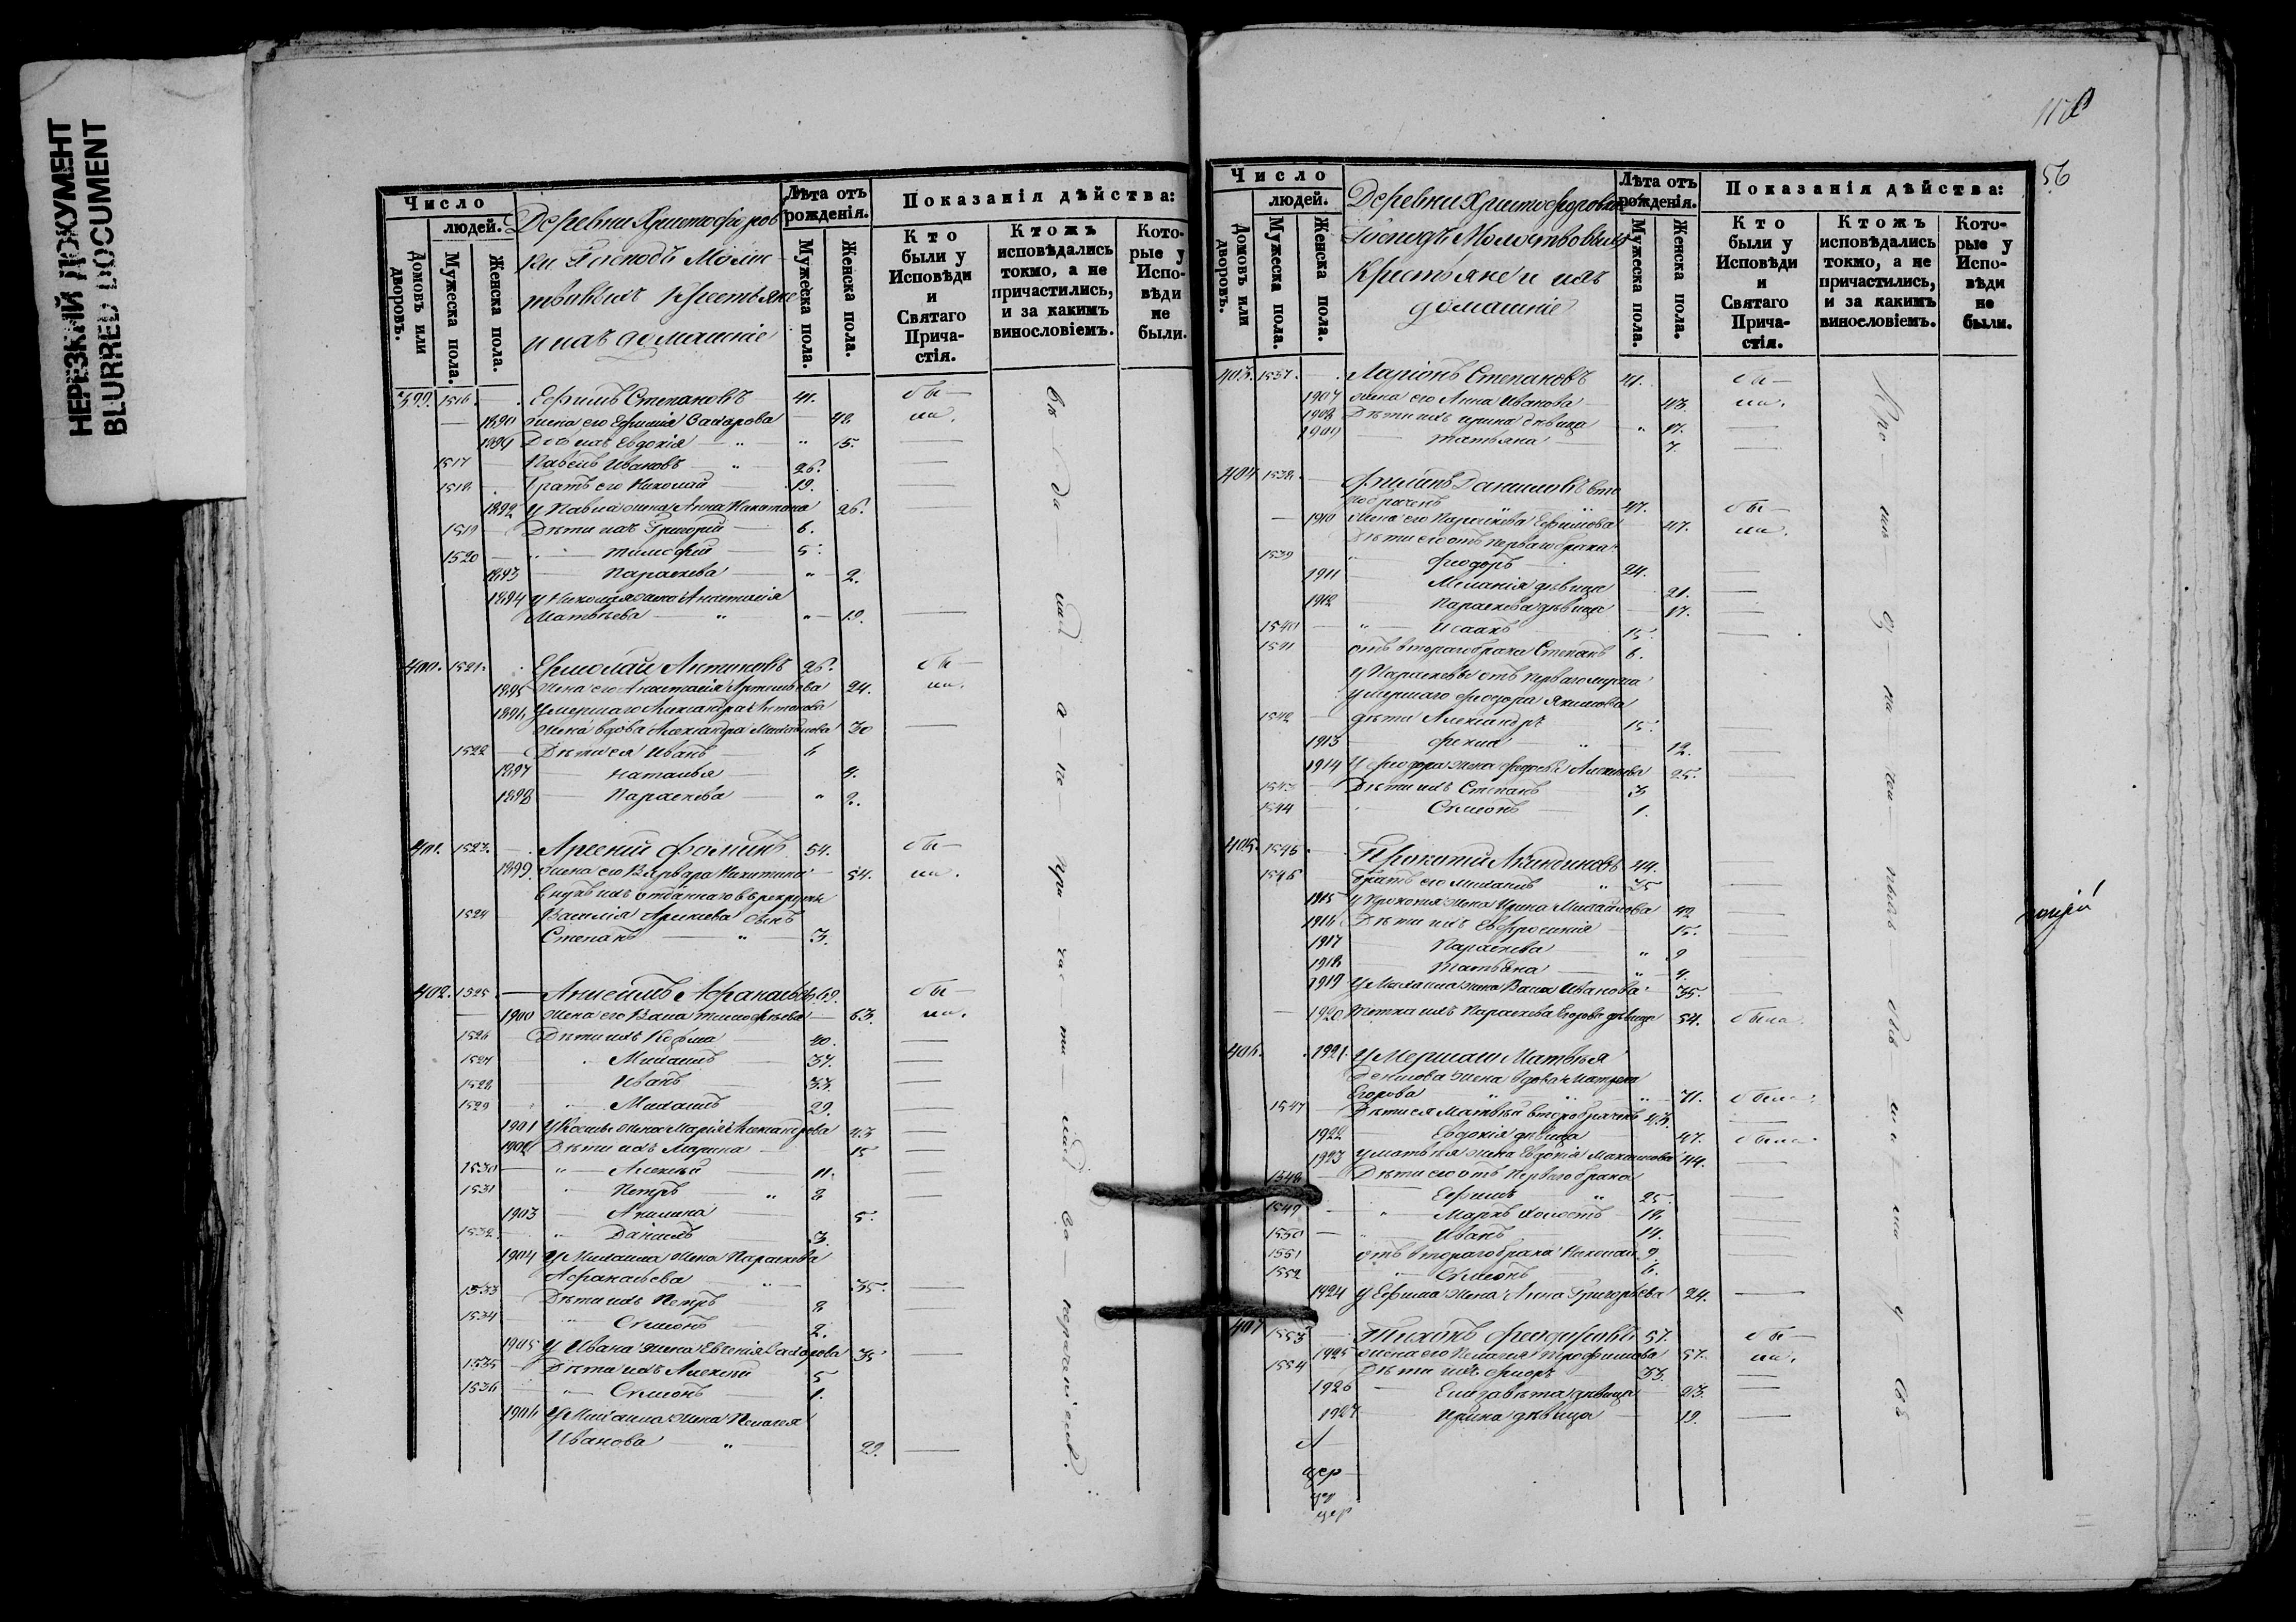 НЕРЕЗКИЙ ДОКУМЕНТ
BLURRED DOCUMENT
Число
людей.
Домовъ или дворовъ.
Мужеска пола.
Женска пола.
Деревни Христофоров
ки Господъ Молос
твовыхъ Крестьяне
и ихъ домашніе
Лѣта отъ рожденія.
Мужеска пола.
Женска пола.
Показанія дѣйства:
Кто были у Исповѣди и Святаго Причастія.
Ктожъ исповѣдались токмо, а не причастились, и за какимъ винословіемъ.
Которые у Исповѣди не были.
399. 1516. Ефимъ Степановъ 41. бы-
1890 жена его Ефимія Захарова 42 ли.
1891 Дочь ихъ Евдокія 15.
1517 Павелъ Ивановъ 26.
1518 братъ его Николай 19.
1892 У Павла жена Анна 26.
1519 Дѣти ихъ Григорій 6.
1520 Тимофей 5.
1893 Параскева 2.
1894 У Николая жена Анастасія
Матвѣева 19.
400. 1521. Ермолай Антоновъ 26. бы-
1895 жена его Анастасія Артемьева 24. ли.
1896 Умершаго Александра Антонова
жена вдова Александра 30
1522 Дѣти ея Иванъ 6
1897 Наталья 4.
1898 Параскева 2.
401. 1523. Арсеній Фоминъ 54. бы-
1899. жена его Варвара Никитина 54. ли.
внукъ ихъ отданнаго въ рекруты
1524 Василія сынъ
Степанъ 3.
402. 1525. Афанасьевъ 69. бы-
1900 жена его Тимофеева 63. ли.
1526 Дѣти ихъ Косма 40.
1527 Михаилъ 37.
1528 Иванъ 33.
1529 Михаилъ 29.
1901 У Космы жена Марія Александрова 43
1902 Дѣти ихъ Марина 15
1530 Алексѣй 11.
1531 Петръ 8
1903 Акилина 5.
1532 Даніилъ 3.
1904 У Михаила жена Параскева
Афанасьева 35.
1533 Дѣти ихъ Петръ 8
1534 Симеонъ 2.
1905 У Ивана жена Евгенія Захарова 35
1535 Дѣти ихъ Алексѣй 5
1536 Симеонъ 1.
1906 У Михаила жена Пелагея
Иванова 29.
56
Число
людей.
Домовъ или дворовъ.
Мужеска пола.
Женска пола.
Деревни Христофоровки
Господъ Молоствовыхъ
Крестьяне и ихъ
домашніе
Лѣта отъ рожденія.
Мужеска пола.
Женска пола.
Показанія дѣйства:
Кто были у Исповѣди и Святаго Причастія.
Ктожъ исповѣдались токмо, а не причастились, и за какимъ винословіемъ.
Которые у Исповѣди не были.
403. 1537. Ларіонъ Степановъ 41. бы-
1907 жена его Анна Иванова 43. ли.
1908 Дѣти ихъ Ирина дѣвица 17.
1909 Татьяна 7.
404 1538. Филипъ Даниловъ вто
робрачен 47. бы-
1910 жена его Параскева Ефимова 47. ли.
Дѣти его отъ перваго брака
1539 Феодоръ 24.
1911 Меланія дѣвица 21.
1912 Параскева дѣвица 17.
1540 Исаакъ 15.
1541 отъ втораго брака Степанъ 6.
У Параскевы отъ перваго мужа
умершаго Феодора Якимова
1542 дѣти Александръ 15.
1913 Фекла 12.
1914 У Феодора жена 25.
1543 Дѣти ихъ Степанъ 3
1544 Симеонъ 1.
405. 1545 Прокопій Акиндиновъ 44.
1546 братъ его Михаилъ 35
1915 У Прокопія жена Ирина Михайлова 42
1916 Дѣти ихъ Евфросинія 15.
1917 Параскева 9
1918 Татьяна 4.
1919 У Михаила жена Васса Иванова 35.
1920 Тетка ихъ Параскева Егорова дѣвица 54. была.
406. 1921. Умершаго Матвѣя
Денисова жена вдова Матрена
Егорова 71. была.
1547 Дѣти ея Матвѣй второбрачен 43.
1922 Евдокія дѣвица 47. была.
1923 У Матвѣя жена Евдокія 44.
1548 Дѣти его отъ перваго брака
Ефимъ 25.
1549 Маркъ холостъ 18.
1550 Иванъ 14.
1551 отъ втораго брака Николай 9.
1552 Симеонъ 6.
1924 У Ефима жена Анна Григорьева 24.
407 1553 Тихонъ 57. бы-
1925 жена его Пелагея Трофимова 57. ли.
1554 Дѣти ихъ 33.
1926 Елизавета дѣвица 23.
1927 Ирина дѣвица 19.